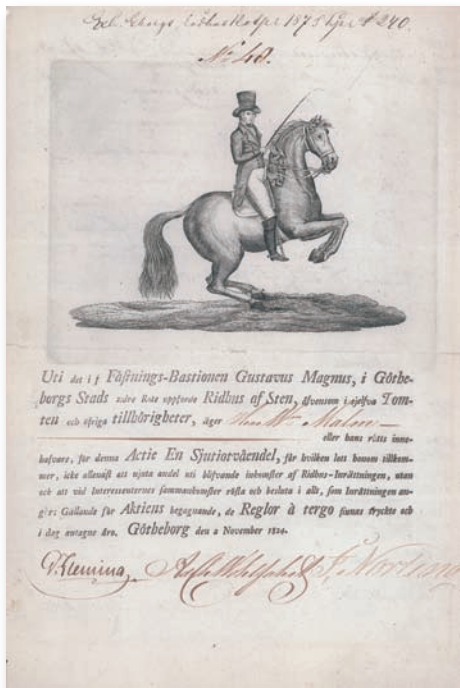 1875
№ 48.
Uti det i f Fästnings-Bastionen Gustavus Magnus, i Göthe-
borgs Stads södre Rote uppförde Ridhus af Sten, äfvensom i sjelfva Tom-
ten och öfriga tillhörigheter, äger Malm
eller hans rätts inne-
hafvare, för denna Actie En Sjutiotvåendel, för hvilken lott honom tillkom-
mer, icke allenast att njuta andel uti blifvande inkomster af Ridhus-Inrättningen, utan
och att vid Interessenternes sammankomster rösta och besluta i allt, som Inrättningen an-
går: Gällande för Aktiens begagnande, de Reglor à tergo finnas tryckte och
i dag antagne äro. Götheborg den 2 November 1824.